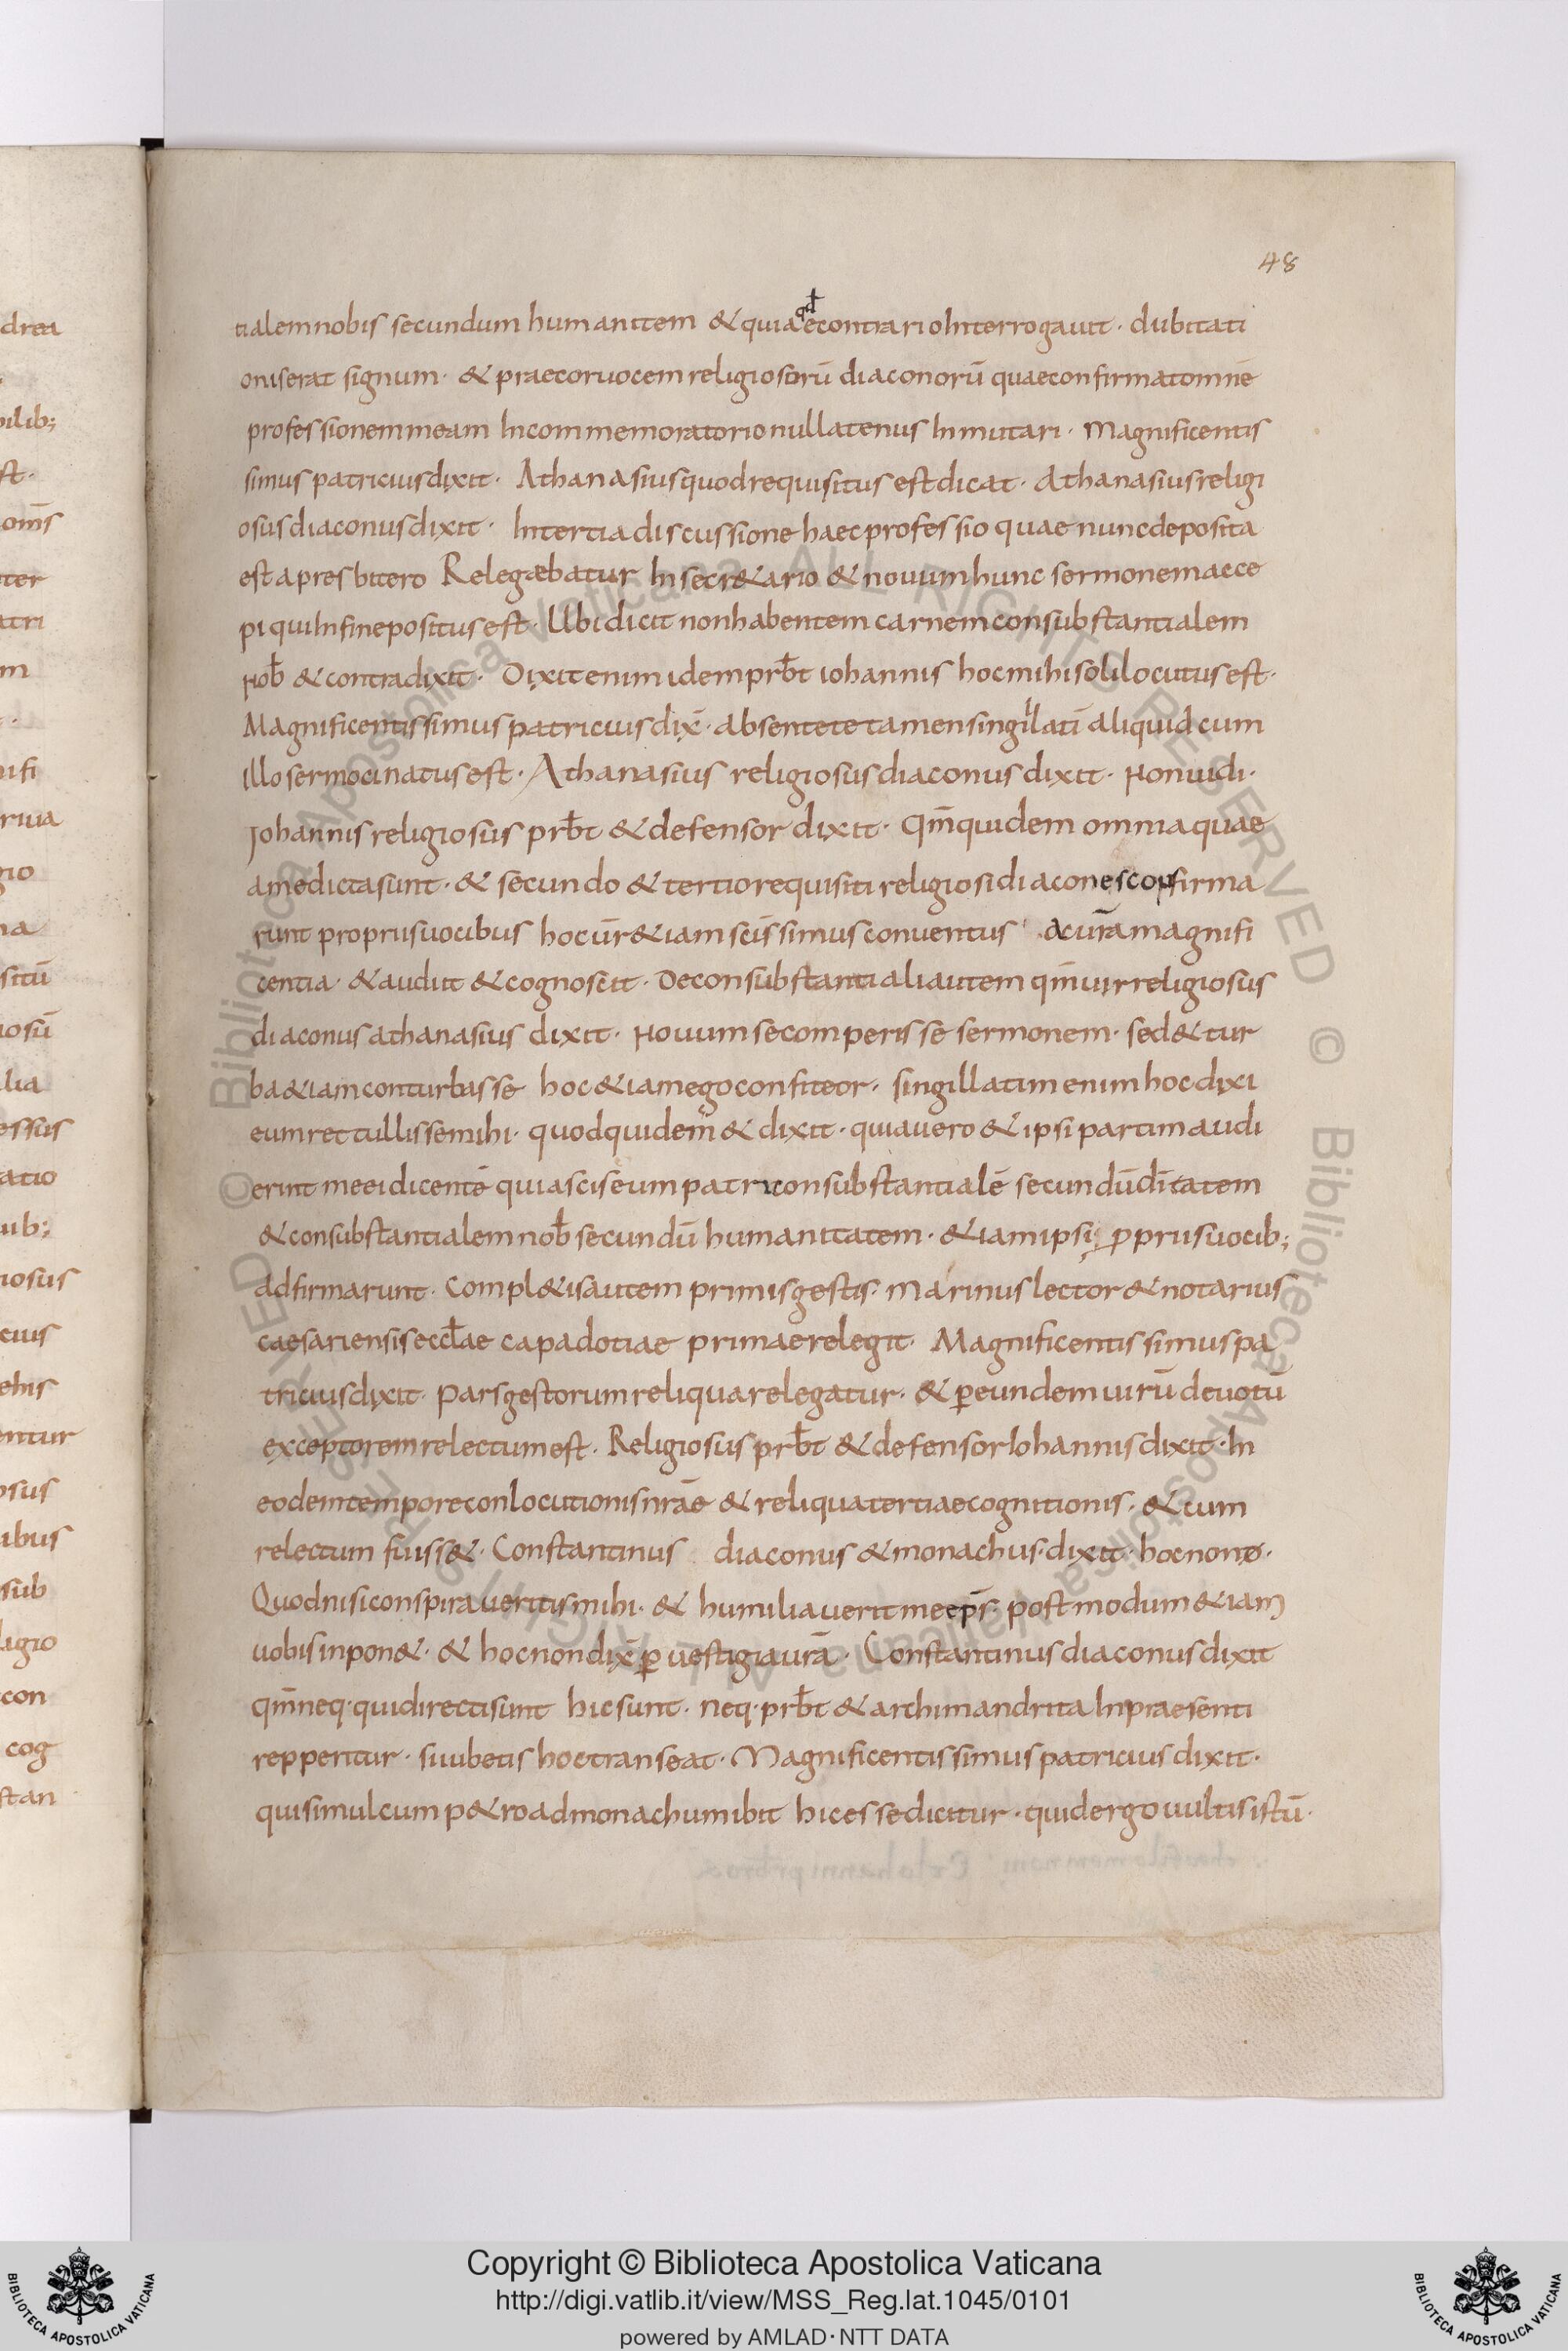 48
tialem nobis secundum humanitem & quia qđ econtrario Interrogauit · dubitati
onis erat signum · & praecor uocem religiosorū diaconorū quae confirmat omnē
professionem meam In commemoratorio nullatenus Inmutari · Magnificentis
simus patricius dixit · Athanasius quod requisitus est dicat · Athanasius religi
osus diaconus dixit · In tertia discussione haec professio quae nunc deposita
est a presbitero Relegaebatur In secr&ario & nouum hunc sermonem acce
pi qui In fine positus est · Ubi dicit non habentem carnem consubstantialem
nob̄ & contradixit · Dixit enim idem prb̄t iohannis hoc mihi soli locutus est ·
Magnificentissimus patricius dix̄ · absente te tamen singilatī aliquid cum
Illo sermocinatus est · Athanasius religiosus diaconus dixit · Non uidi ·
Johannis religiosus prb̄t & defensor dixit · Qm̄ quidem omnia quae
a me dicta sunt · & secundo & tertio requisiti religiosi diacones confirma
runt propriis uocibus hoc ūr &iam scīssimus conuentus acurām magnifi
centia · & audiit & cognoscit · De consubstantiali autem qm̄ uir religiosus
diaconus athanasius dixit · Nouum se comperisse sermonem · sed & tur
ba &iam conturbasse hoc &iam ego confiteor · singillatim enim hoc dixi
eum rettullisse mihi · quod quidem & dixit · quia uero & ipsi partim audi
erint me ei dicentē quia scis eum patri consubstantialē secundū dītatem
& consubstantialem nob̄ secundū humanitatem · &iam ipsi ꝓpriis uocib;
adfirmarunt · Compl&is autem primis gestis · Marinus lector & notarius
caesariensis eccl̄ae capadotiae primae relegit · Magnificentissimus pa
tricius dixit · Pars gestorum reliqua relegatur · & ꝑ eundem uirū deuotū
exceptorem relectum est · Religiosus prb̄t & defensor Iohannis dixit · In
eodem tempore conlocutionis nrāe & reliqua tertiae cognitionis · & cum
relectum fuiss& · Constantinus diaconus & monachus · dixit · hoc non ·
Quod nisi conspiraueritis mihi · & humiliauerit me ep̄s · postmodum &iam
uobis inpon& · & hoc non dix̄ ꝑ uestigia urā · Constantinus diaconus dixit
qm̄ neq · qui directi sunt hic sunt · neq · prb̄t & archimandrita In praesenti
repperitur · si iubetis hoc transeat · Magnificentissimus patricius dixit ·
qui simul cum p&ro ad monachum ibit hic esse dicitur · quid ergo uultis istū ·
Copyright © Biblioteca Apostolica Vaticana
http://digi.vatlib.it/view/MSS_Reg.lat.1045/0101
powered by AMLAD · NTT DATA